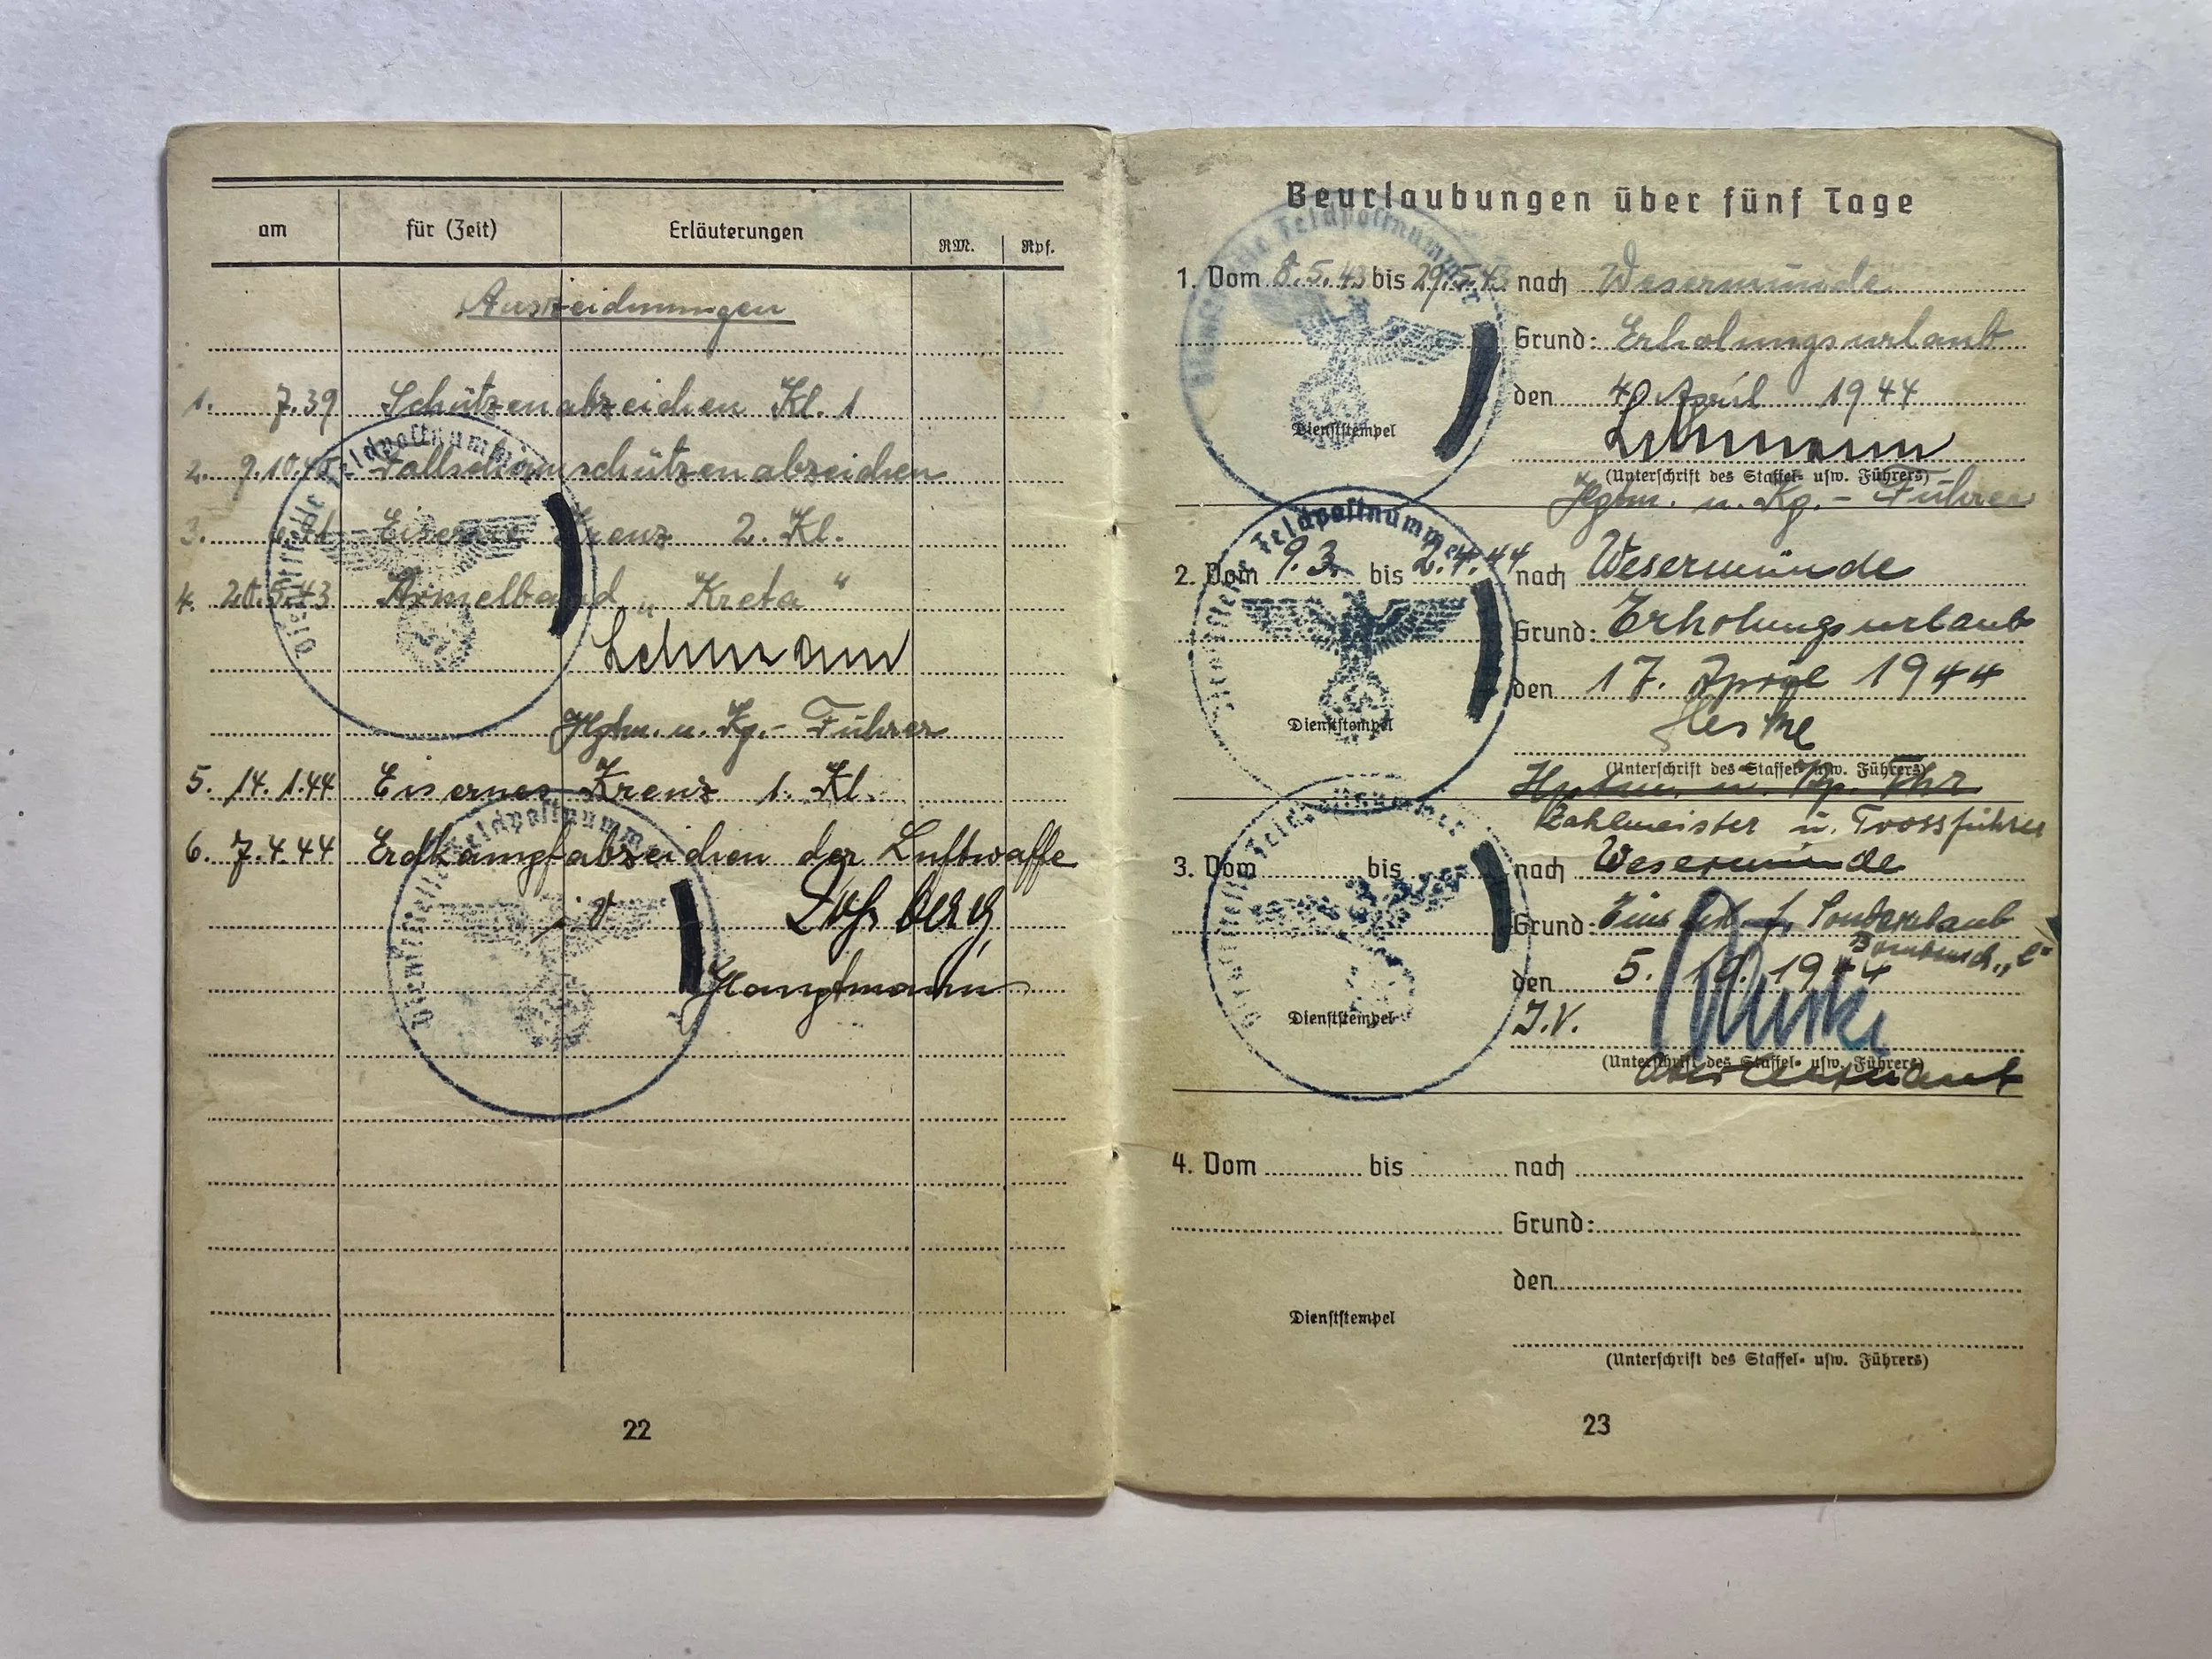 am für (Zeit) Erläuterungen RM. Rpf.
Auszeichnungen
1. 7.39 Schützenabzeichen Kl. 1
2. 9.10. Fallschirmschützenabzeichen
3. Eiserne Krenz 2. Kl.
4. 20.5.43 Ärmelband „Kreta“
Lehmann
Hptm. u. Kp.-Führer
5. 14.1.44 Eisernes Kreuz 1. Kl.
6. 7.4.44 Erdkampfabzeichen der Luftwaffe
Hauptmann
Dienststelle Feldpostnummer
Dienststelle Feldpostnummer
22
Beurlaubungen über fünf Tage
1. Vom 8.5.43 bis 29.5.43 nach Wesermünde
Grund: Erholungsurlaub
den 4. April 1944
Lehmann
Dienststempel
(Unterschrift des Staffel- usw. Führers)
Hptm. u. Kp.-Führer
Dienststelle Feldpostnummer
2. Vom 9.3. bis 2.4.44 nach Wesermünde
Grund: Erholungsurlaub
den 17. April 1944
Dienststempel
(Unterschrift des Staffel- usw. Führers)
Hptm. u. Kp. Fhr
Zahlmeister u. Trossführer
Dienststelle Feldpostnummer
3. Vom bis nach Wesermünde
Grund: Sonderurlaub
den 5. 10. 1944
J.V.
Dienststempel
(Unterschrift des Staffel- usw. Führers)
Oberleutnant
Dienststelle Feldpostnummer
4. Vom bis nach
Grund:
den
Dienststempel
(Unterschrift des Staffel- usw. Führers)
23